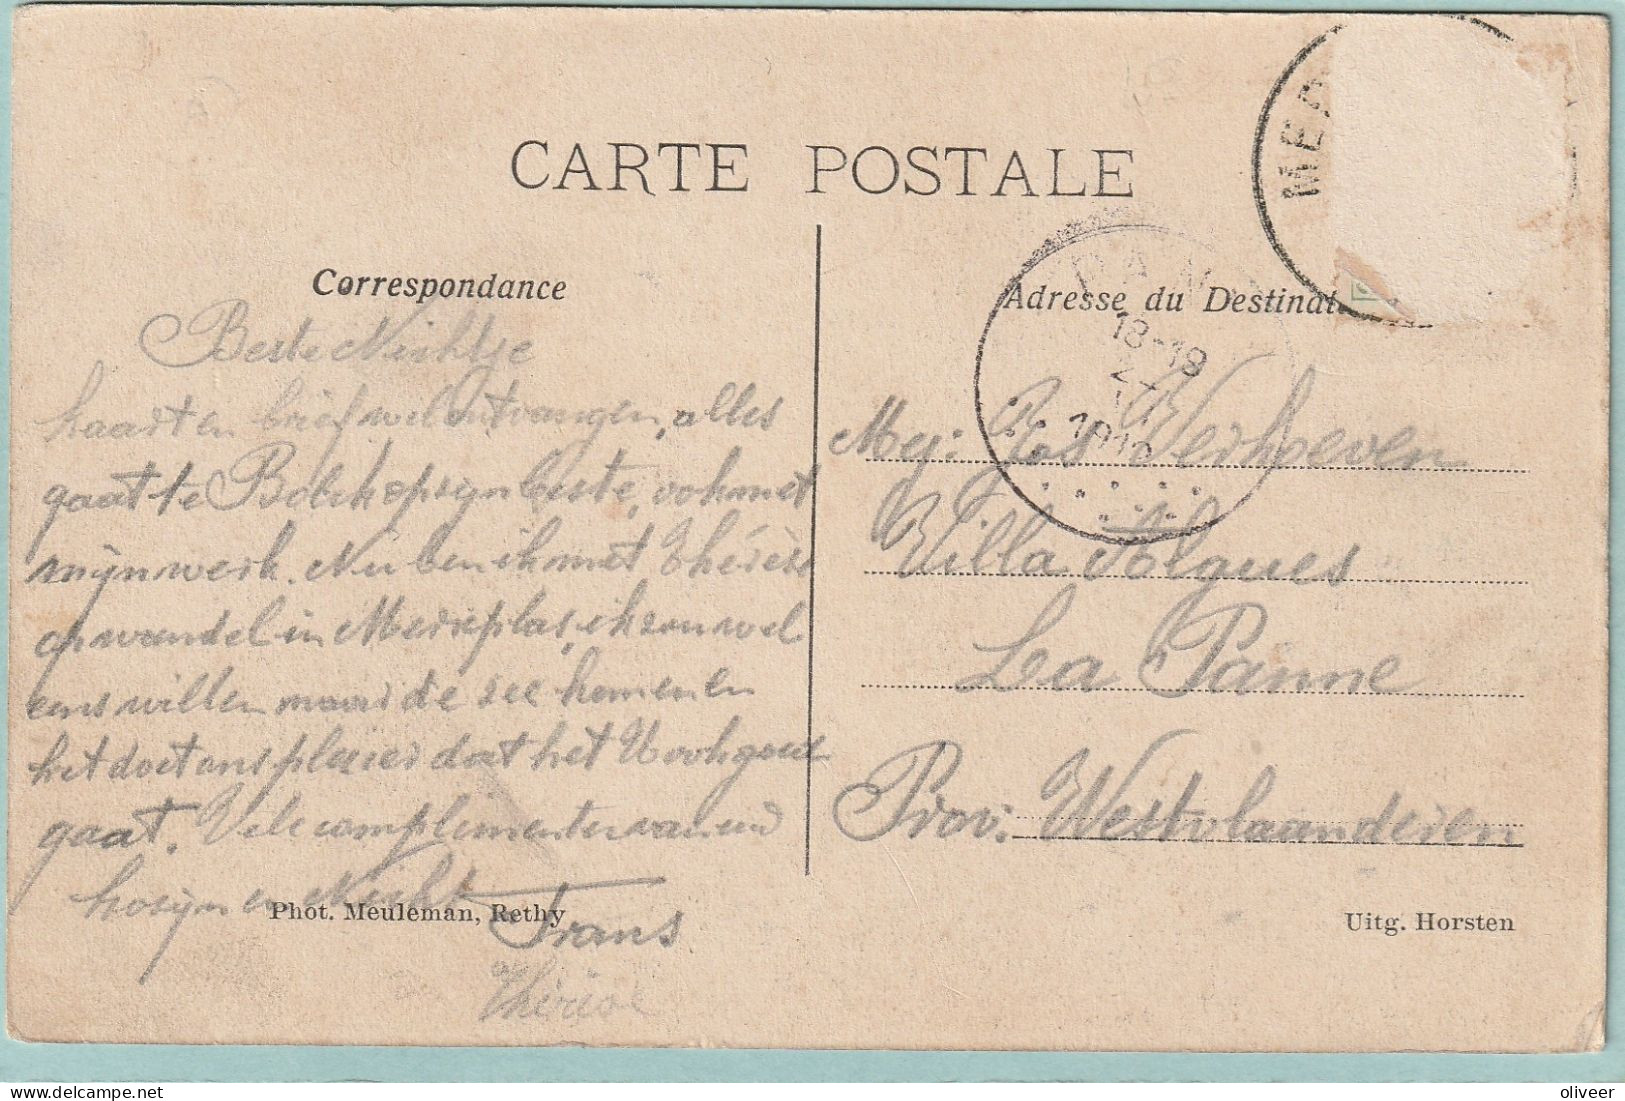 CARTE POSTALE
MER
Correspondance
Beste Nichtje
kaart en brief wel ontvangen, alles
gaat te Bolck opzyn beste, ook met
mijn werk. Nu ben ik met Thérèse
op wandel in Merxplas, ik zou wel
eens willen naar de zee komen en
het doet ons plesier dat het U ook goed
gaat. Vele complementen van uw
kozijn en Nicht
Frans
Thérèse
Phot. Meuleman, Rethy
Adresse du Destinat
PAN
18-19
1912
Mej: Ros Verhoeven
Villa Algues
La Panne
Prov: Westvlaanderen
Uitg. Horsten
oliveer